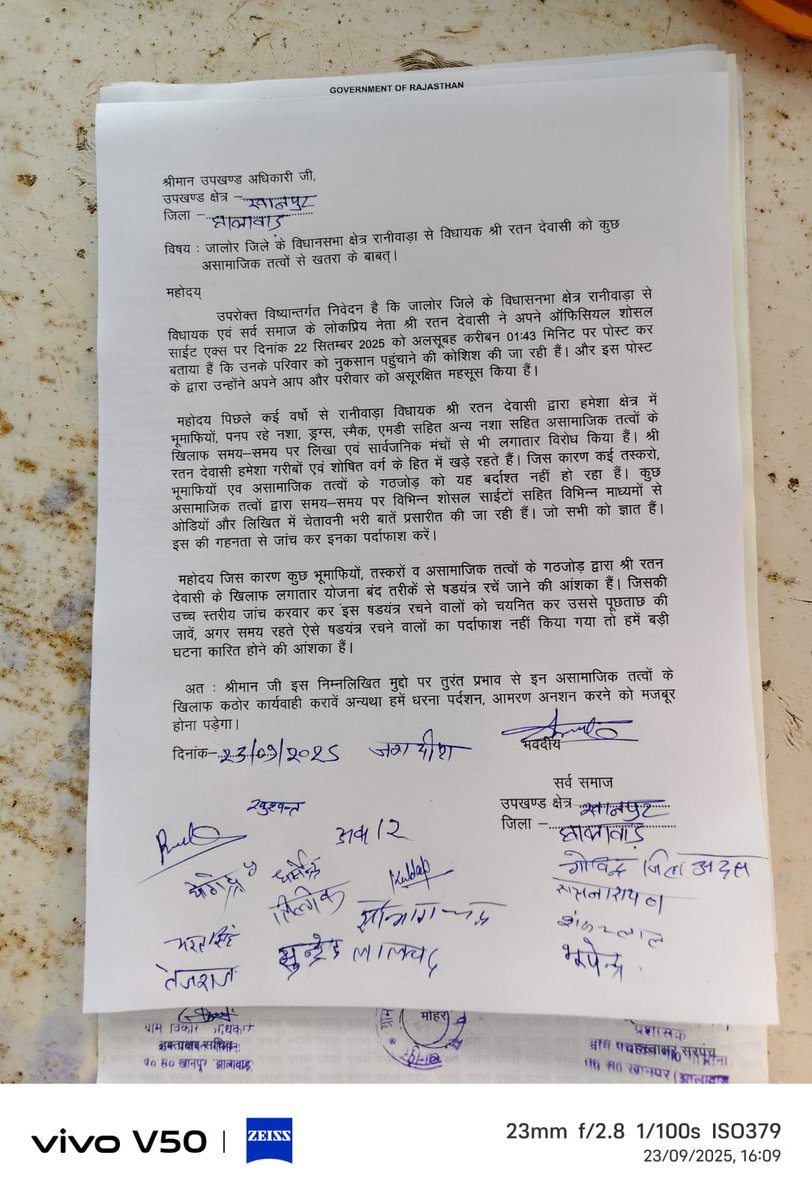 GOVERNMENT OF RAJASTHAN
श्रीमान उपखण्ड अधिकारी जी,
उपखण्ड क्षेत्र – खानपुर
जिला – झालावाड़
विषय : जालोर जिले के विधानसभा क्षेत्र रानीवाड़ा से विधायक श्री रतन देवासी को कुछ
असामाजिक तत्वों से खतरा के बाबत्।
महोदय्
उपरोक्त विष्यान्तर्गत निवेदन है कि जालोर जिले के विधासनभा क्षेत्र रानीवाड़ा से
विधायक एवं सर्व समाज के लोकप्रिय नेता श्री रतन देवासी ने अपने ऑफिसियल शोसल
साईट एक्स पर दिनांक 22 सितम्बर 2025 को अलसूबह करीबन 01:43 मिनिट पर पोस्ट कर
बताया हैं कि उनके परिवार को नुकसान पहुंचाने की कोशिश की जा रही हैं। और इस पोस्ट
के द्वारा उन्होंने अपने आप और परीवार को असूरक्षित महसूस किया हैं।
महोदय पिछले कई वर्षो से रानीवाड़ा विधायक श्री रतन देवासी द्वारा हमेशा क्षेत्र में
भूमाफियों, पनप रहे नशा, ड्रग्स, स्मैक, एमडी सहित अन्य नशा सहित असामाजिक तत्वों के
खिलाफ समय–समय पर लिखा एवं सार्वजनिक मंचों से भी लगातार विरोध किया हैं। श्री
रतन देवासी हमेशा गरीबों एवं शोषित वर्ग के हित में खड़े रहते हैं। जिस कारण कई तस्करो,
भूमाफियों एव असामाजिक तत्वों के गठजोड़ को यह बर्दाश्त नहीं हो रहा हैं। कुछ
असामाजिक तत्वों द्वारा समय–समय पर विभिन्न शोसल साईटों सहित विभिन्न माध्यमों से
ओडियों और लिखित में चेतावनी भरी बातें प्रसारीत की जा रही हैं। जो सभी को ज्ञात हैं।
इस की गहनता से जांच कर इनका पर्दाफाश करें।
महोदय जिस कारण कुछ भूमाफियों, तस्करों व असामाजिक तत्वों के गठजोड़ द्वारा श्री रतन
देवासी के खिलाफ लगातार योजना बंद तरीकें से षडयंत्र रचें जाने की आंशका हैं। जिसकी
उच्च स्तरीय जांच करवार कर इस षडयंत्र रचने वालों को चयनित कर उससे पूछताछ की
जावें, अगर समय रहते ऐसे षडयंत्र रचने वालों का पर्दाफाश नहीं किया गया तो हमें बड़ी
घटना कारित होने की आंशका हैं।
अत : श्रीमान जी इस निम्नलिखित मुद्दो पर तुरंत प्रभाव से इन असामाजिक तत्वों के
खिलाफ कठोर कार्यवाही करावें अन्यथा हमें धरना पर्दशन, आमरण अनशन करने को मजबूर
होना पड़ेगा।
दिनांक– 23/09/2025 जगदीश
भवदीय
सर्व समाज
उपखण्ड क्षेत्र खानपुर
जिला – झालावाड़
गोविन्द जिला
सत्यनारायण
शंकरलाल
भूपेन्द्र
Kuldeep
लालचंद
तेजराज
मोहर
ग्राम विकास
प्रशासक
पं० स० खानपुर झालावाड़
पं० स० खानपुर (झालावाड़
vivo V50 | ZEISS
23mm f/2.8 1/100s ISO379
23/09/2025, 16:09